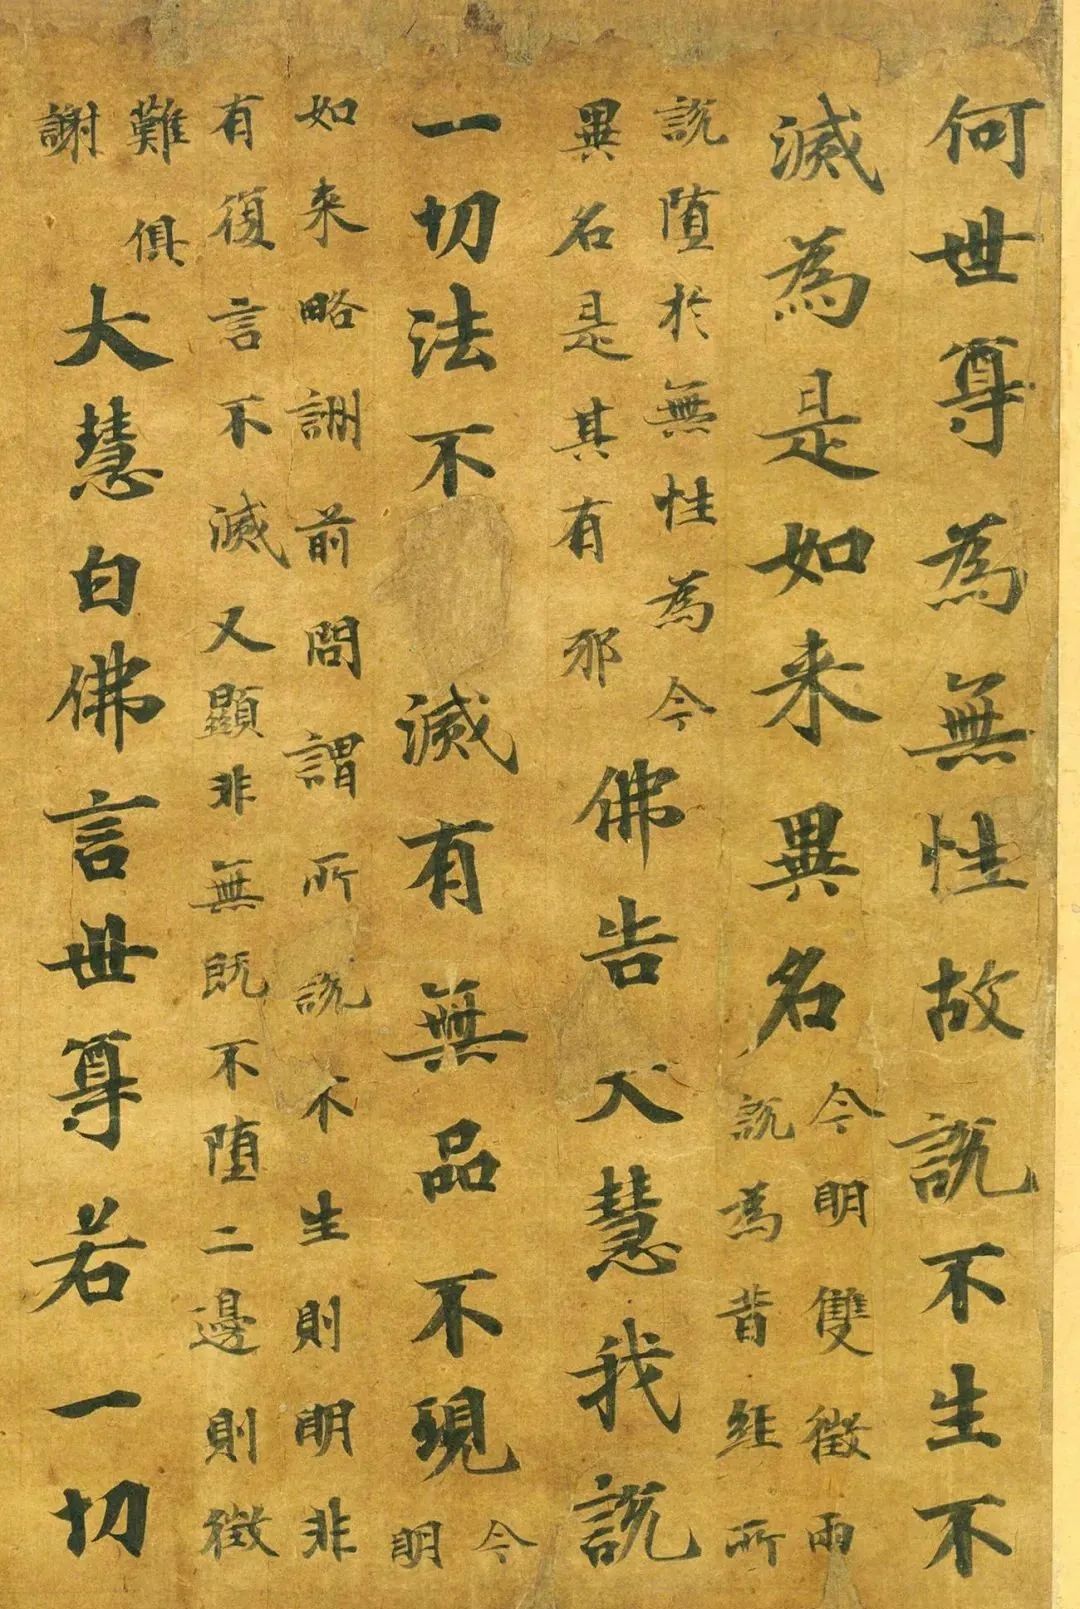 何世尊為無性故說不生不
滅為是如来異名
今明雙徵兩
說為昔經所
說堕於無性為今
異名是其有邪
佛告大慧我說
一切法不滅有無品不現
今
明
如来略詶前問謂所說不生則明非
有復言不滅又顯非無既不堕二邊則徵
難俱
謝
大慧白佛言世尊若一切